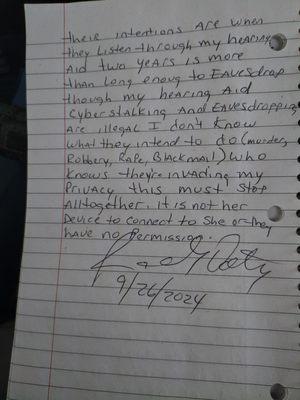 their intentions Are when
they Listen through my heARing
Aid two years is more
than Long enoug to EAvesdrop
though my hearing Aid
cyberstalking And EAvesdropping
Are illegal I don't Know
what they intend to do (murder,
Robbery, RApe, BlAckmail) who
Knows they're invading my
PRivacy this must stop
ALLtogether. it is not her
Device to connect to She or they
hAve no permission.
9/26/2024